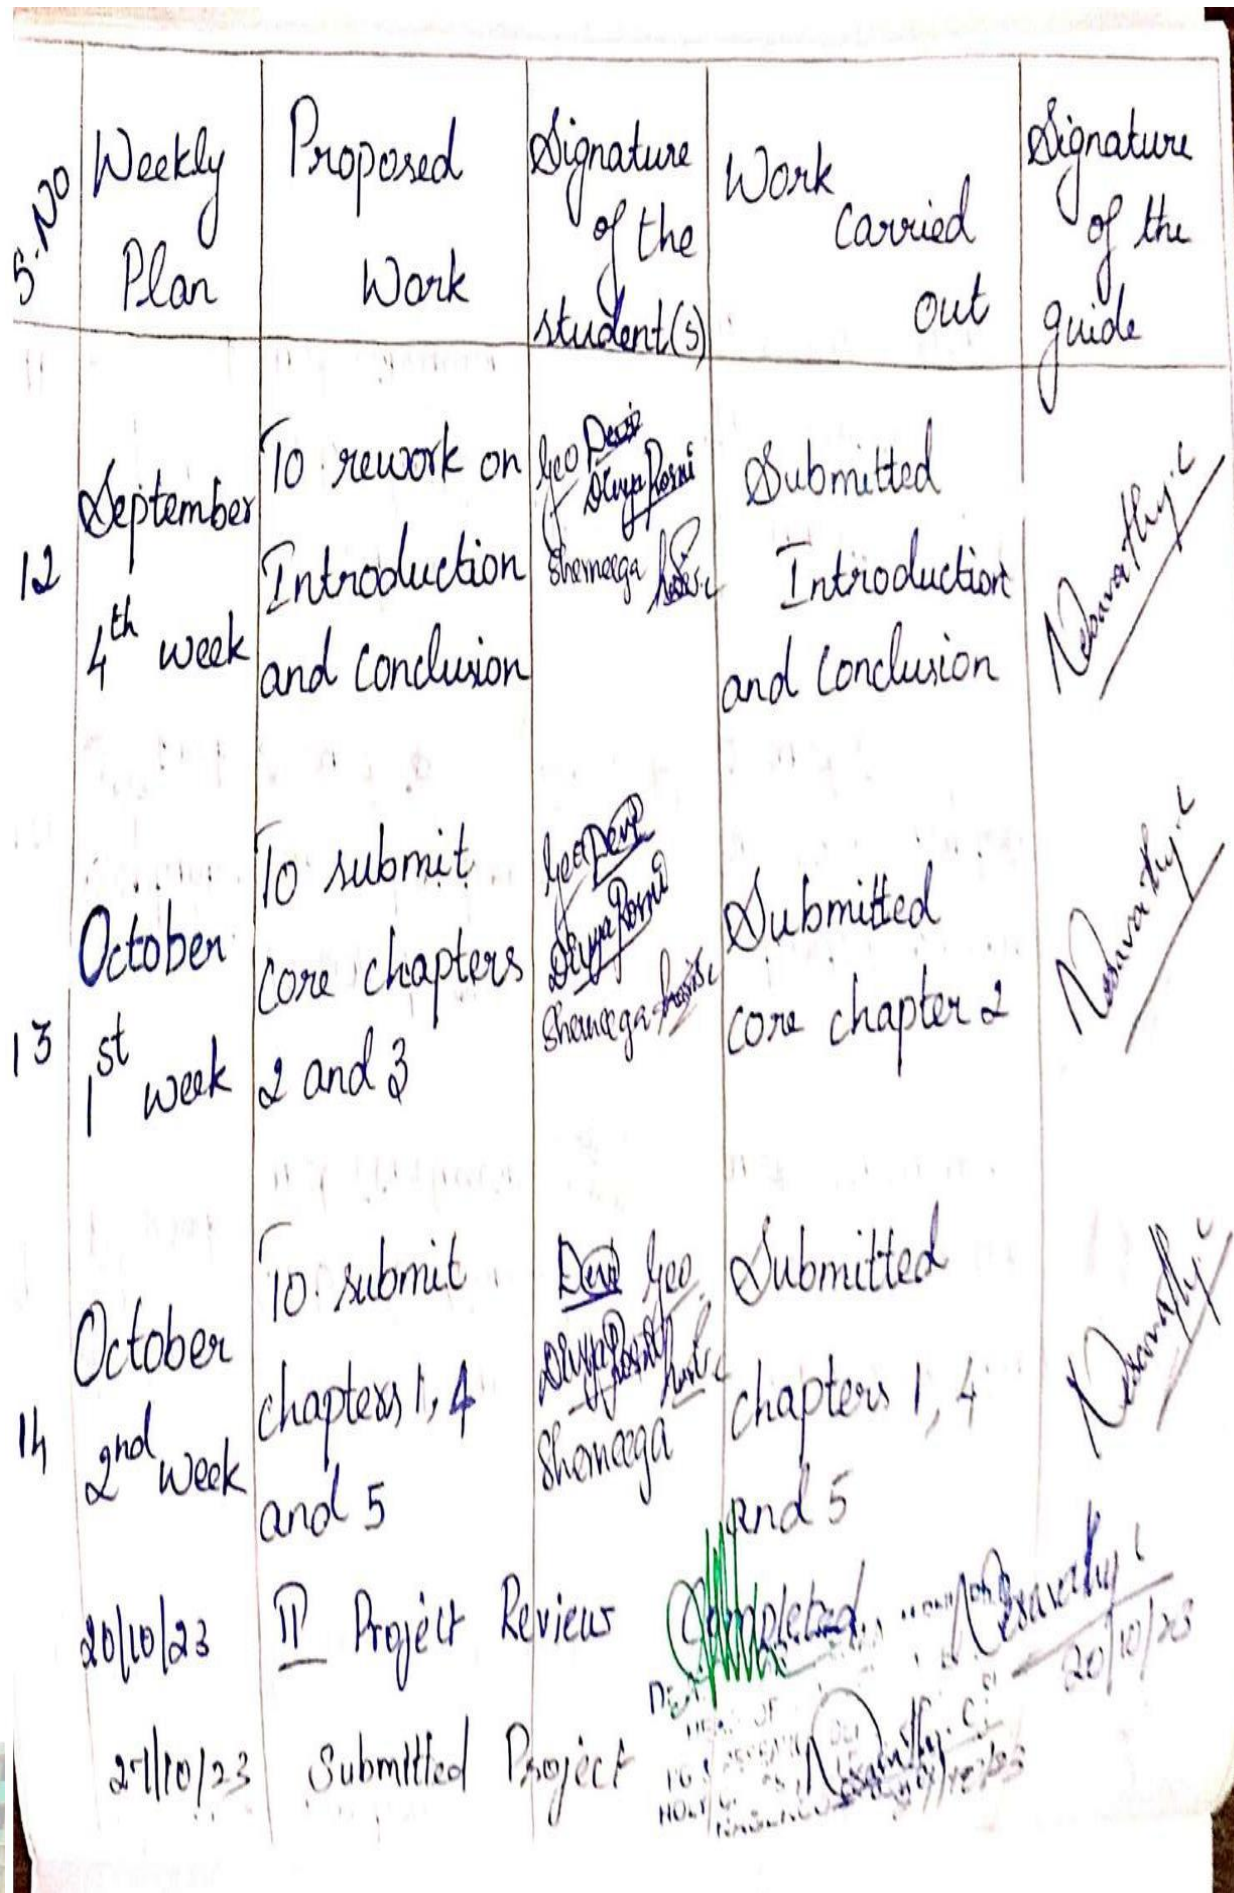 S.No
Weekly
Plan
Proposed
Work
Signature
of the
student(s)
Work
carried
out
Signature
of the
guide
12
September
4th week
To rework on
Introduction
and conclusion
Geo Devi
Divya Rosni
Shemeega
Submitted
Introduction
and conclusion
Nesavathy. C
13
October
1st week
To submit
core chapters
2 and 3
Geo Devi
Divya Rosni
Shemeega
Submitted
core chapter 2
Nesavathy. C
14
October
2nd week
To submit
chapters 1, 4
and 5
Devi Geo
Shemeega
Submitted
chapters 1, 4
and 5
Nesavathy. C
20/10/23 II Project Review Completed Nesavathy. C
20/10/23
27/10/23 Submitted Project